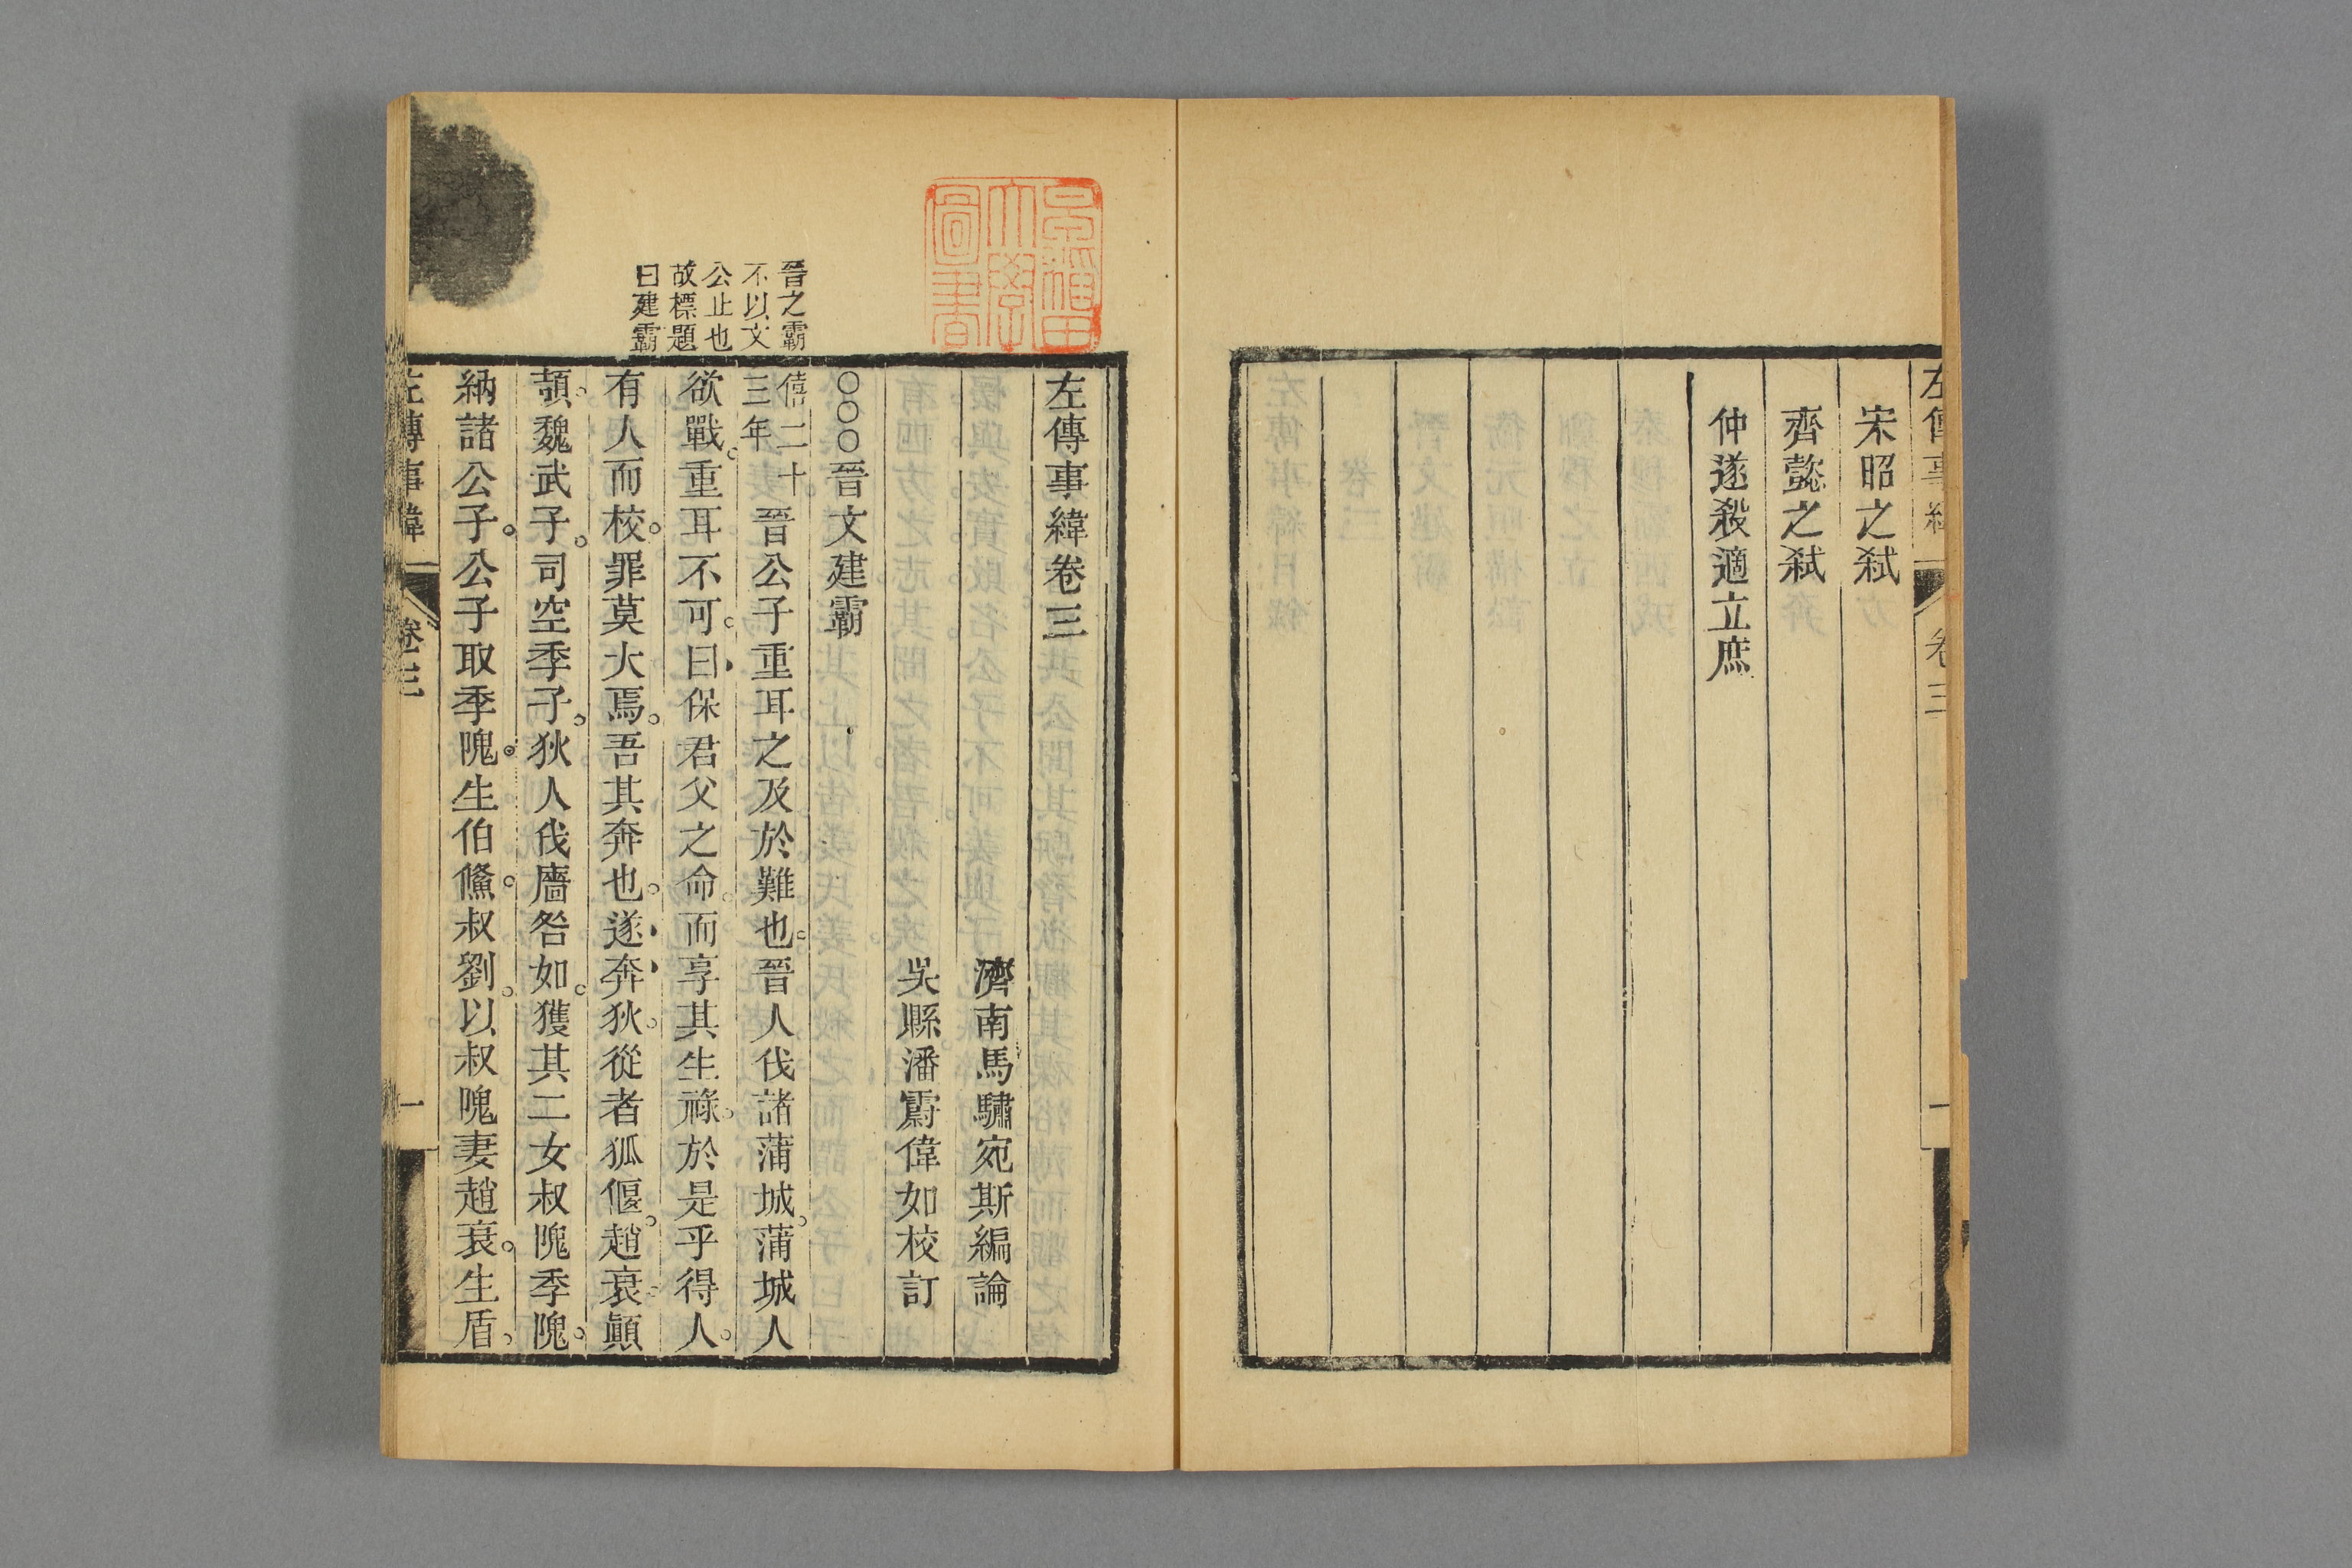 宋昭之弒
齊懿之弒
仲遂殺適立庶
早稻田
大學
圖書
晉之霸
不以文
公止也
故標題
曰建霸
左傳事緯卷三
濟南馬驌宛斯編論
吳縣潘霨偉如校訂
○○○晉文建霸
僖二十
三年
晉公子重耳之及於難也。晉人伐諸蒲城。蒲城人
欲戰。重耳不可。曰、保君父之命。而享其生祿。於是乎得人。
有人而校。罪莫大焉。吾其奔也。遂、奔、狄。從者狐偃。趙衰。顚
頡。魏武子。司空季子。狄人伐廧咎如。獲其二女叔隗季隗。
納諸公子。公子取季隗。生伯鯈。叔劉。以叔隗妻趙衰。生盾。
左傳事緯
卷三
一